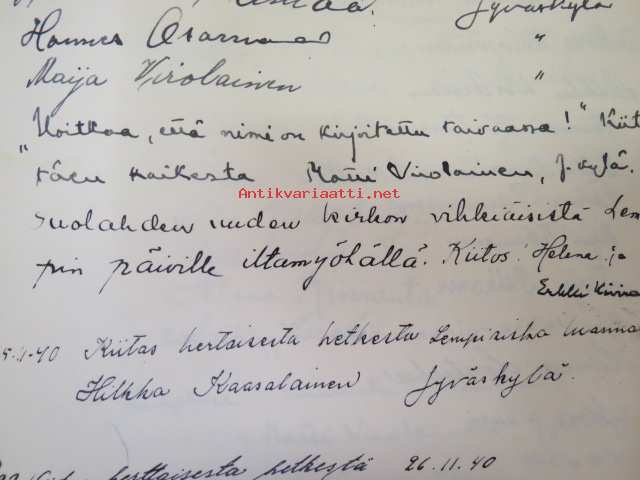 Jyväskylä
Hannes "
Maija Virolainen "
"Iloitkaa, että nimi on kirjoitettu taivaassa!" Kiit
täen kaikesta Matti Virolainen, J.kylä.
Antikvariaatti.net
Suolahden uuden kirkon vihkiäisistä Lem
pin päiville iltamyöhällä. Kiitos! Helena ja
Erkki
40 Kiitos herttaisesta hetkestä Lempi siskon luona
Hilkka Kaasalainen Jyväskylä.
herttaisesta hetkestä 26.11.40